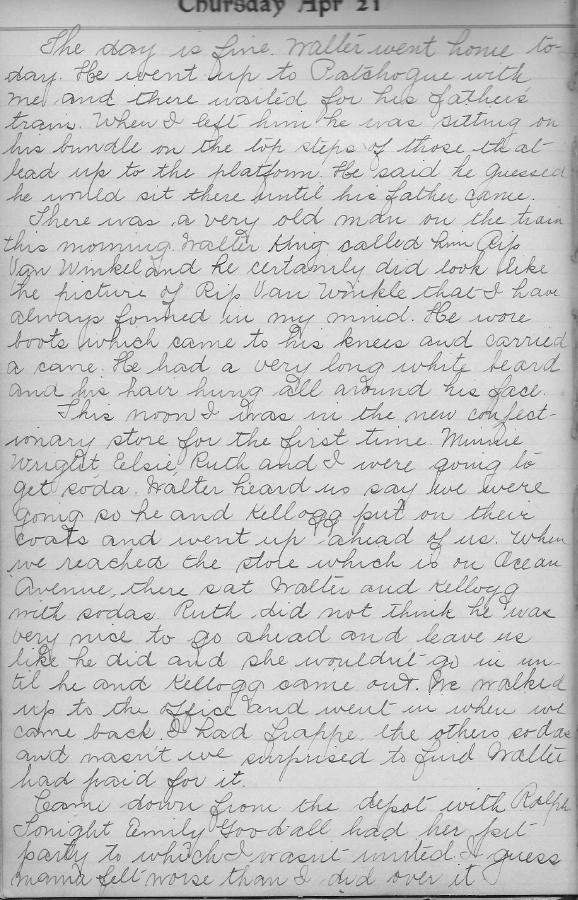 Thursday Apr 21
The day is fine. Walter went home to-
day. He went up to Patchogue with
me and there waited for his father's
train. When I left him he was sitting on
his bundle on the top steps of those that
lead up to the platform. He said he guessed
he would sit there until his father came.
There was a very old man on the train
this morning. Walter King called him Rip
Van Winkel and he certainly did look like
the picture of Rip Van Winkle that I have
always formed in my mind. He wore
boots which came to his knees and carried
a cane. He had a very long white beard
and his hair hung all around his face.
This noon I was in the new confect-
ionary store for the first time. Minnie
Wright Elsie, Ruth and I were going to
get soda. Walter heard us say we were
going so he and Kellogg put on their
coats and went up ahead of us. When
we reached the store which is on Ocean
Avenue, there sat Walter and Kellogg
with sodas. Ruth did not think he was
very nice to go ahead and leave us
like he did and she wouldn't go in un-
til he and Kellogg came out. We walked
up to the office and went in when we
came back. I had frappe, the others sodas
and wasn't we surprised to find Walter
had paid for it.
Came down from the depot with Ralph
Tonight Emily Goodall had her pit
party to which I wasn't invited. I guess
mama felt worse than I did over it